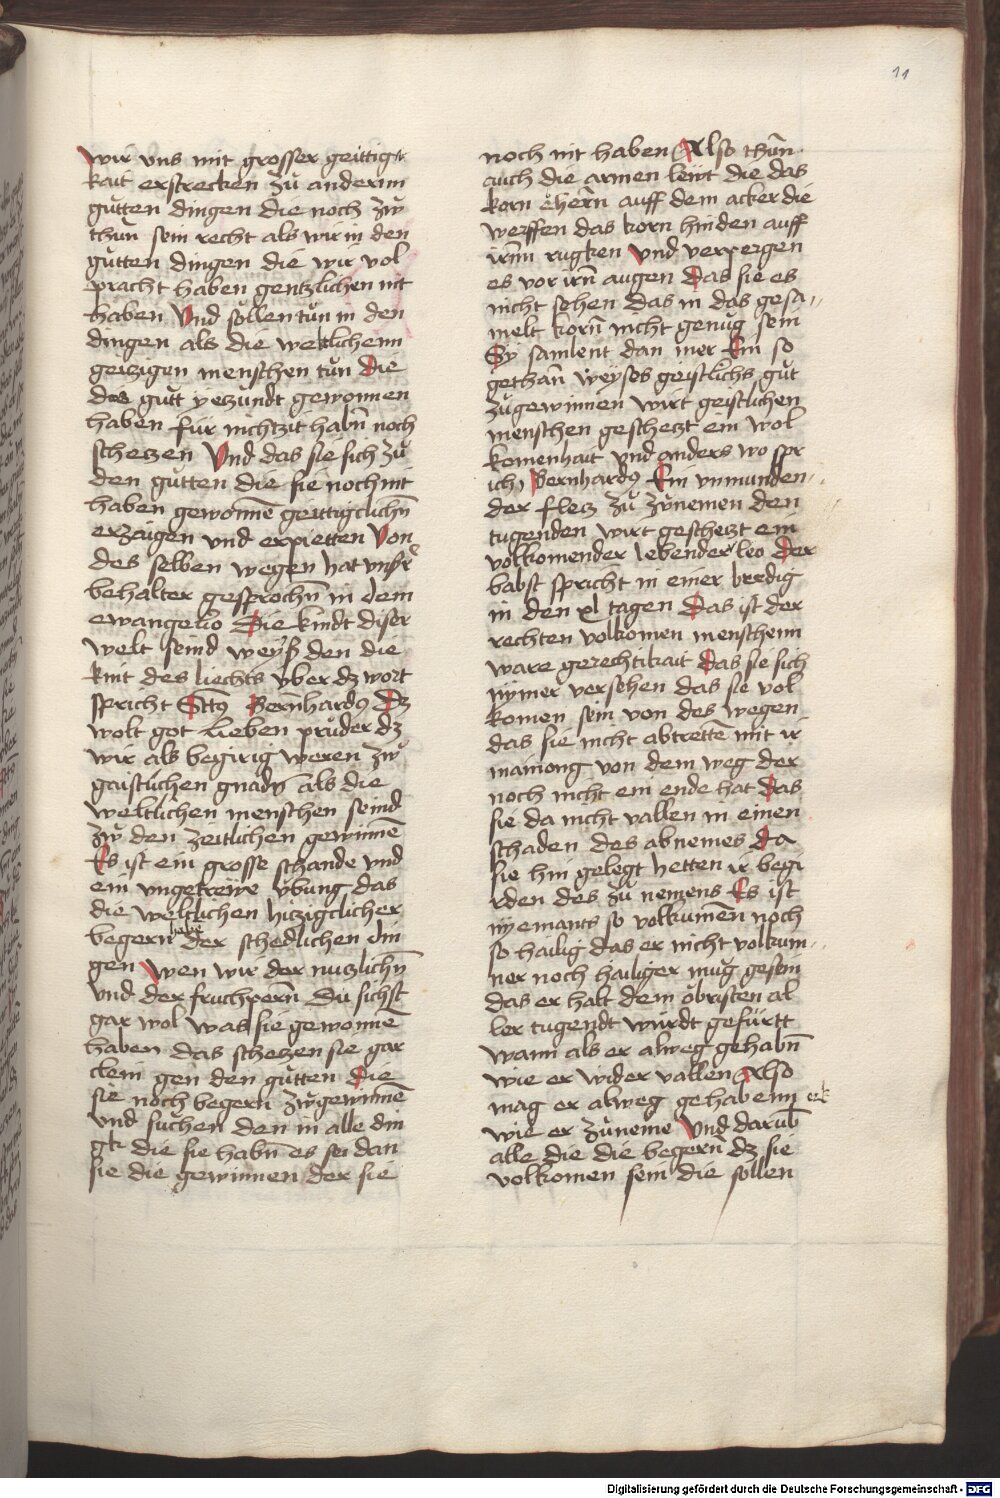 11
wir vns mit grosser geittigk
kait erstrecken zů anderm
gůtten dingen die noch zw̆
thun sein recht als wir in den
gůtten dingen die wir vol
pracht haben gentzlichen nit
haben Vnd sŏllen tůn in den
dingen als die weltlichenn
geizigen menschen tůn Die
das gůtt yetzundt gewonnen
haben für nichtzit habn̄ noch
schetzen Vnd das sie sich zů
den gůtten die sie noch nit
haben gewonnē geittigclichn̄
erzaigen vnd erpietten Von
des selben wegen hat vnser
behalter gesprochn̄ in dem
ewangelio Die kindt diser
welt seind weyß den die
kint des liechts vber dz wort
spricht Sctꝰ Bernhardꝰ Dz
wolt got lieben prüder dz
wir als begirig weren zw̆
gaistlichen gnadn̄ als die
weltlichen menschen seind
zw̆ den zeitlichen gewinnē
Es ist ein grosse schande vnd
ein vngetrewe vbung das
die weltlichen hizigclicher
begern habē der schedlichen din
gen Wen wir der nutzlichn̄
vnd der fruchpern̄ Du sichst
gar wol was sie gewonnē
haben das schetzen sie gar
clein gen den gůtten Die
sie noch begern zw̆gewinnē
vnd suchen den in alle din
gk die sie habn̄ es sei dan
sie die gewinnen der sie
noch nit haben Also thůn
auch die armen lewt die das
korn ehern̄ auff dem acker die
werffen das korn hinden auff
irem rugken vnd verpergen
es vor irn̄ augen Das sie es
nicht sehen das in das gesa
melt korn̄ nicht genůg sein
Sy samlent dan mer Ein so
gethan̄ weyses geistlichs gůt
zůgewinnen wirt geistlichen
menschen geschetzt ein wol
komenhait vnd anders wo spr
icht Bernhardꝰ Ein vnmunden
der fleiz zů zůnemen den
tugenden wirt geschetzt ein
volkomender lebender leo Der
babst spricht in einer bredig
in den xl tagen Das ist der
rechten volkomen menschenn
ware gerechtikait Das sie sich
nÿmer versehen das sie vol
komen sein von des wegen
das sie nicht abtrettē mit ir
mainong von dem weg der
noch nicht ein ende hat Das
sie da nicht vallen in einen
schaden des abnemes Da
sie hin gelegt hetten ir begi
rden des zů nemens Es ist
nÿemants so volkumen̄ noch
so hailig das er nicht volkum
ner noch hailiger mug gesein
Das er halt dem obristen al
ler tugendt würdt gefürtt
wann als er alweg gehabn̄
wie er wider vallen Also
mag er alweg gehabenn
wie er zůneme Vnd darūb
alle die die begern̄ dz sie
volkomen sein die sollen
Digitalisierung gefördert durch die Deutsche Forschungsgemeinschaft - DFG